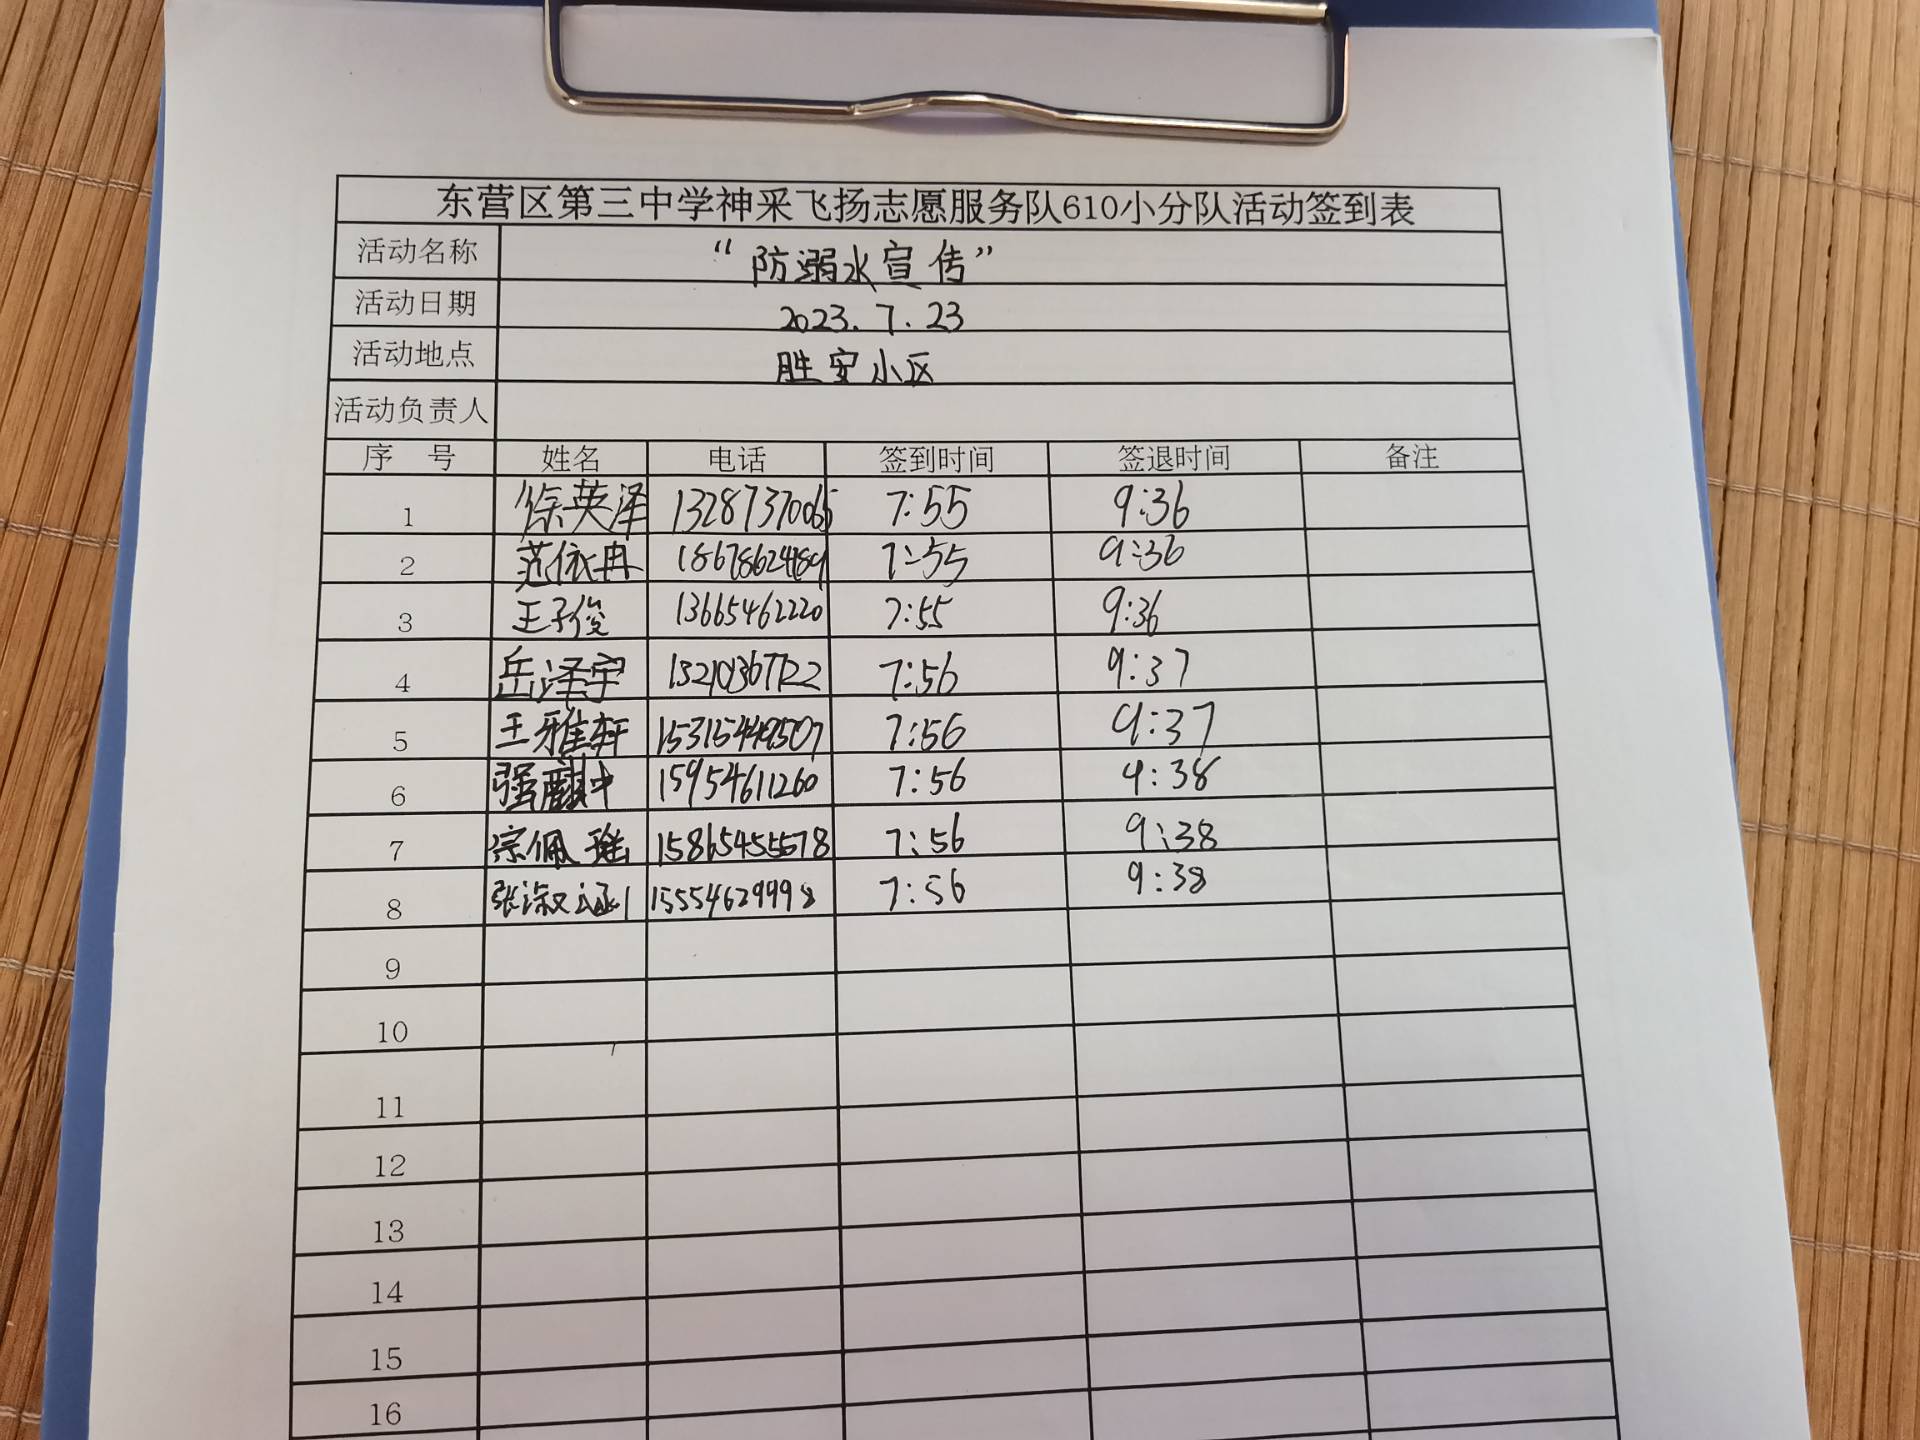 东营区第三中学神采飞扬志愿服务队610小分队活动签到表
活动名称 “防溺水宣传”
活动日期 2023.7.23
活动地点 胜安小区
活动负责人
序 号 姓名 电话 签到时间 签退时间 备注
1 徐英泽 13287370065 7:55 9:36
2 范依冉 7:55 9:36
3 王子俊 13665462220 7:55 9:36
4 岳泽宇 7:56 9:37
5 王雅轩 7:56 9:37
6 强麒中 15954611260 7:56 9:38
7 宗佩瑶 7:56 9:38
8 张淑涵 15554629998 7:56 9:38
9
10
11
12
13
14
15
16